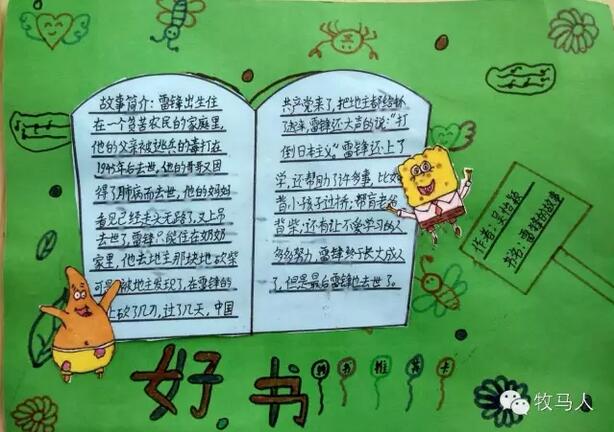 故事简介：雷锋出生住
在一个贫苦农民的家庭里，
他的父亲被逃兵的毒打在
1945年后去世，他的哥哥又因
得了肺病而去世，他的妈妈
看见已经走头无路了，又上吊
去世了，雷锋只能住在奶奶
家里，他去地主那块地砍柴
可是被地主发现了，在雷锋的
上砍了几刀，过了几天，中国
共产党来了，把地主都给
了起来，雷锋还大声的说："打
倒日本主义"雷锋还上了
学，还帮助了许多事，比如
背小孩子过桥，帮肯老爷
背柴，还有让不爱学习的人
多多努力，雷锋终于长大成人
了，但是最后雷锋也去世了。
作者：吴怡颖
书名：雷锋的故事
好书
好书推荐卡
牧马人